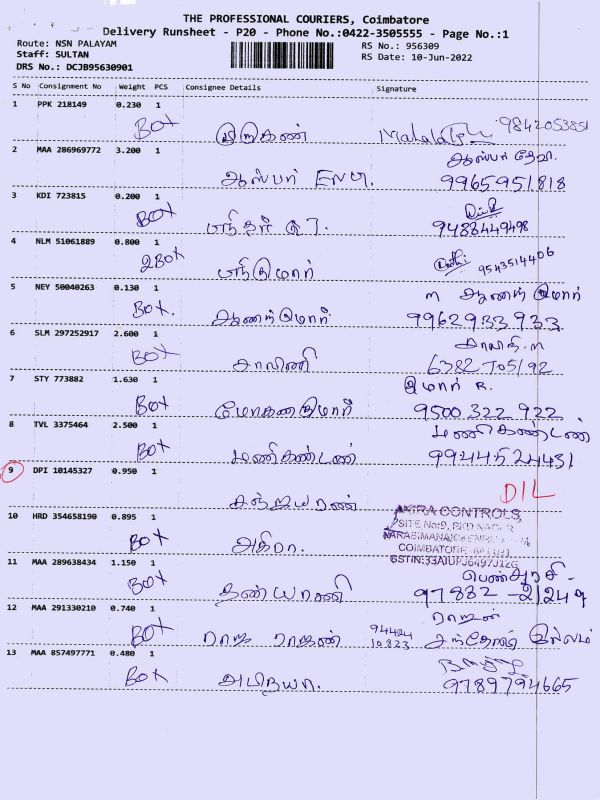 THE PROFESSIONAL COURIERS, Coimbatore
Delivery Runsheet - P20 - Phone No.:0422-3505555 - Page No.:1
Route: NSN PALAYAM
RS No.: 956309
Staff: SULTAN
RS Date: 10-Jun-2022
DRS No.: DCJB95630901
S No Consignment No Weight PCS Consignee Details Signature
1 PPK 218149 0.230 1
BOX 9842053851
2 MAA 286969772 3.200 1
ஆஸ்பர் 9965951818
3 KDI 723815 0.200 1
BOX 9488449498
4 NLM 51061889 0.800 1
2BOX 9543514406
5 NEY 50040263 0.130 1
BOX. ஆனந்குமார் 9962933933
6 SLM 297252917 2.600 1
BOX சாலினி
7 STY 773882 1.630 1
குமார் R.
BOX மோகனகுமார் 9500322922
8 TVL 3375464 2.500 1
மணிகண்டன்
BOX மணிகண்டன் 9944524431
9 DPI 10145327 0.950 1
DIL
AKIRA CONTROLS,
10 HRD 354658190 0.895 1
BOX
COIMBATORE
11 MAA 289638434 1.150 1
BOX 97882 -
12 MAA 291330210 0.740 1
ராஜன்
BOX ராஜ ராஜன் 94424 10823 சந்தோஷ் இல்லம்
13 MAA 857497771 0.480 1
BOX அபிநயா. 9789794665